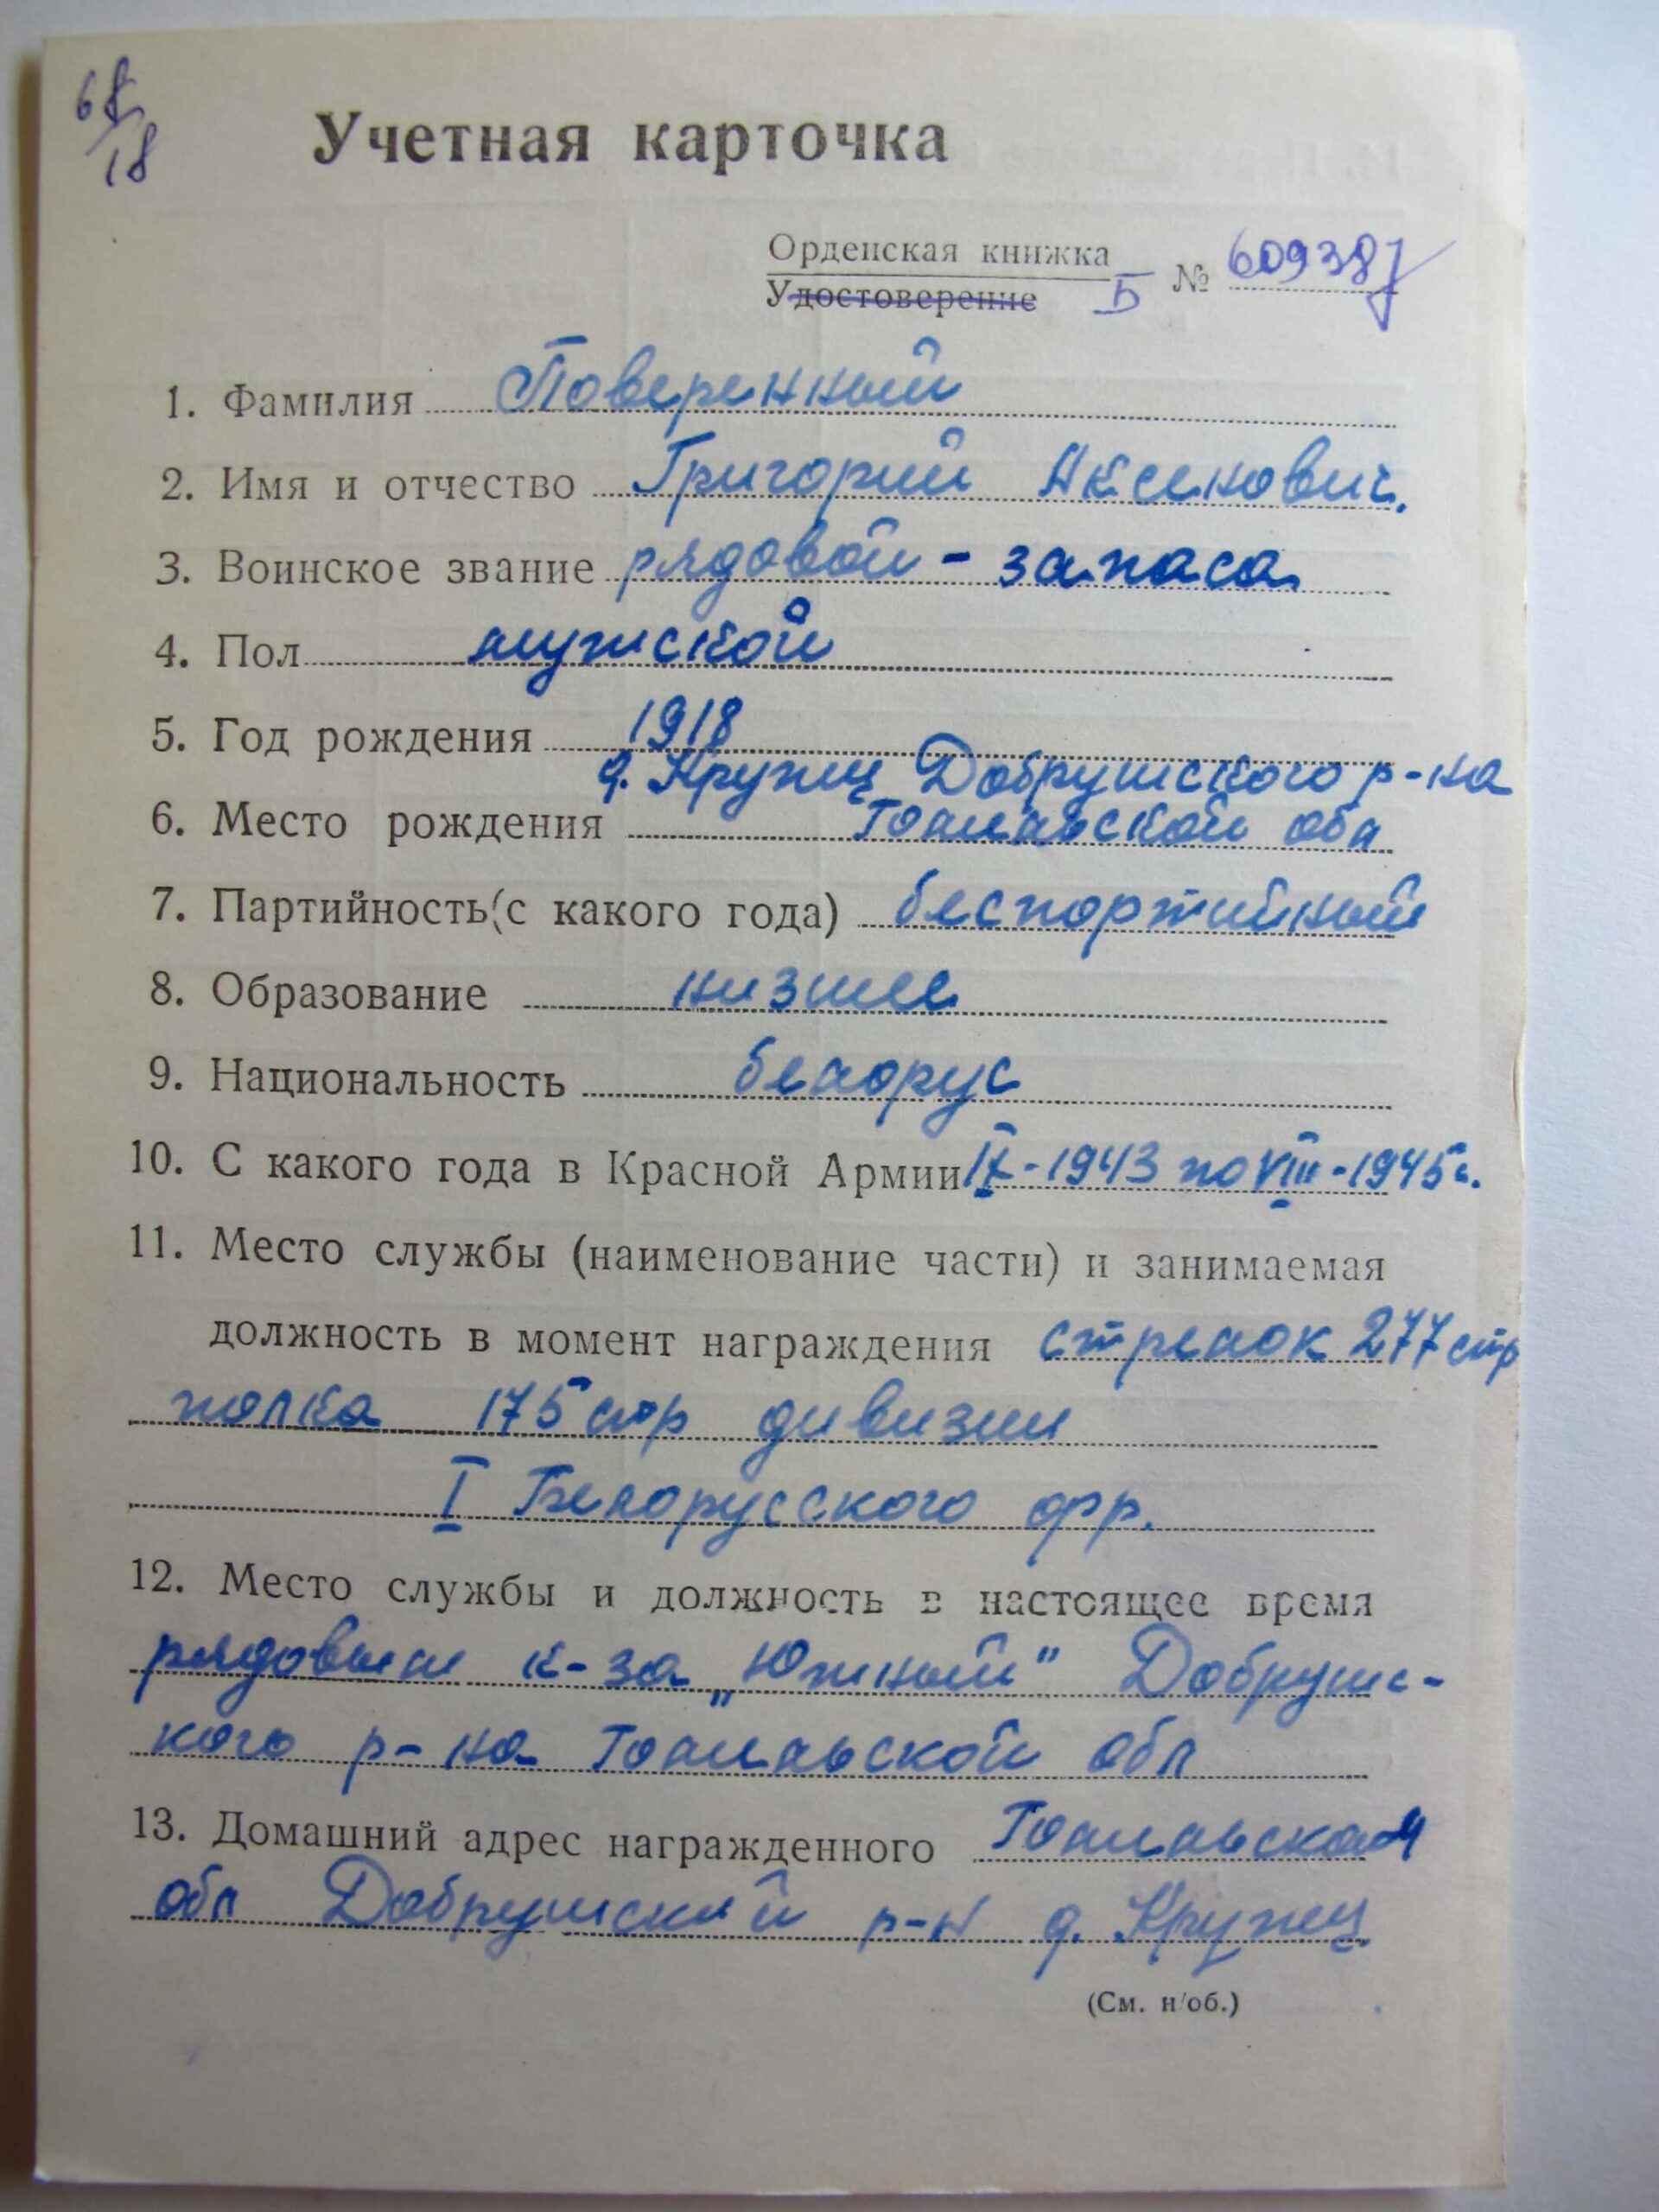 68/18
Учетная карточка
Орденская книжка
Удостоверение Б № 609387
1. Фамилия Поверенный
2. Имя и отчество Григорий Аксенович.
3. Воинское звание рядовой - запаса
4. Пол мужской
5. Год рождения 1918
д. Кружец Добрушского р-на
6. Место рождения Гомельской обл
7. Партийность (с какого года) беспортийный
8. Образование низшее
9. Национальность белорус
10. С какого года в Красной Армии IX-1943 по VIII-1945г.
11. Место службы (наименование части) и занимаемая
должность в момент награждения стрелок 277 стр
полка 175 стр дивизии
I Белорусского фр.
12. Место службы и должность в настоящее время
рядовым к-за „Южный" Добрушс-
кого р-на Гомельской обл
13. Домашний адрес награжденного Гомельская
обл Добрушский р-н д. Кружец
(См. н/об.)